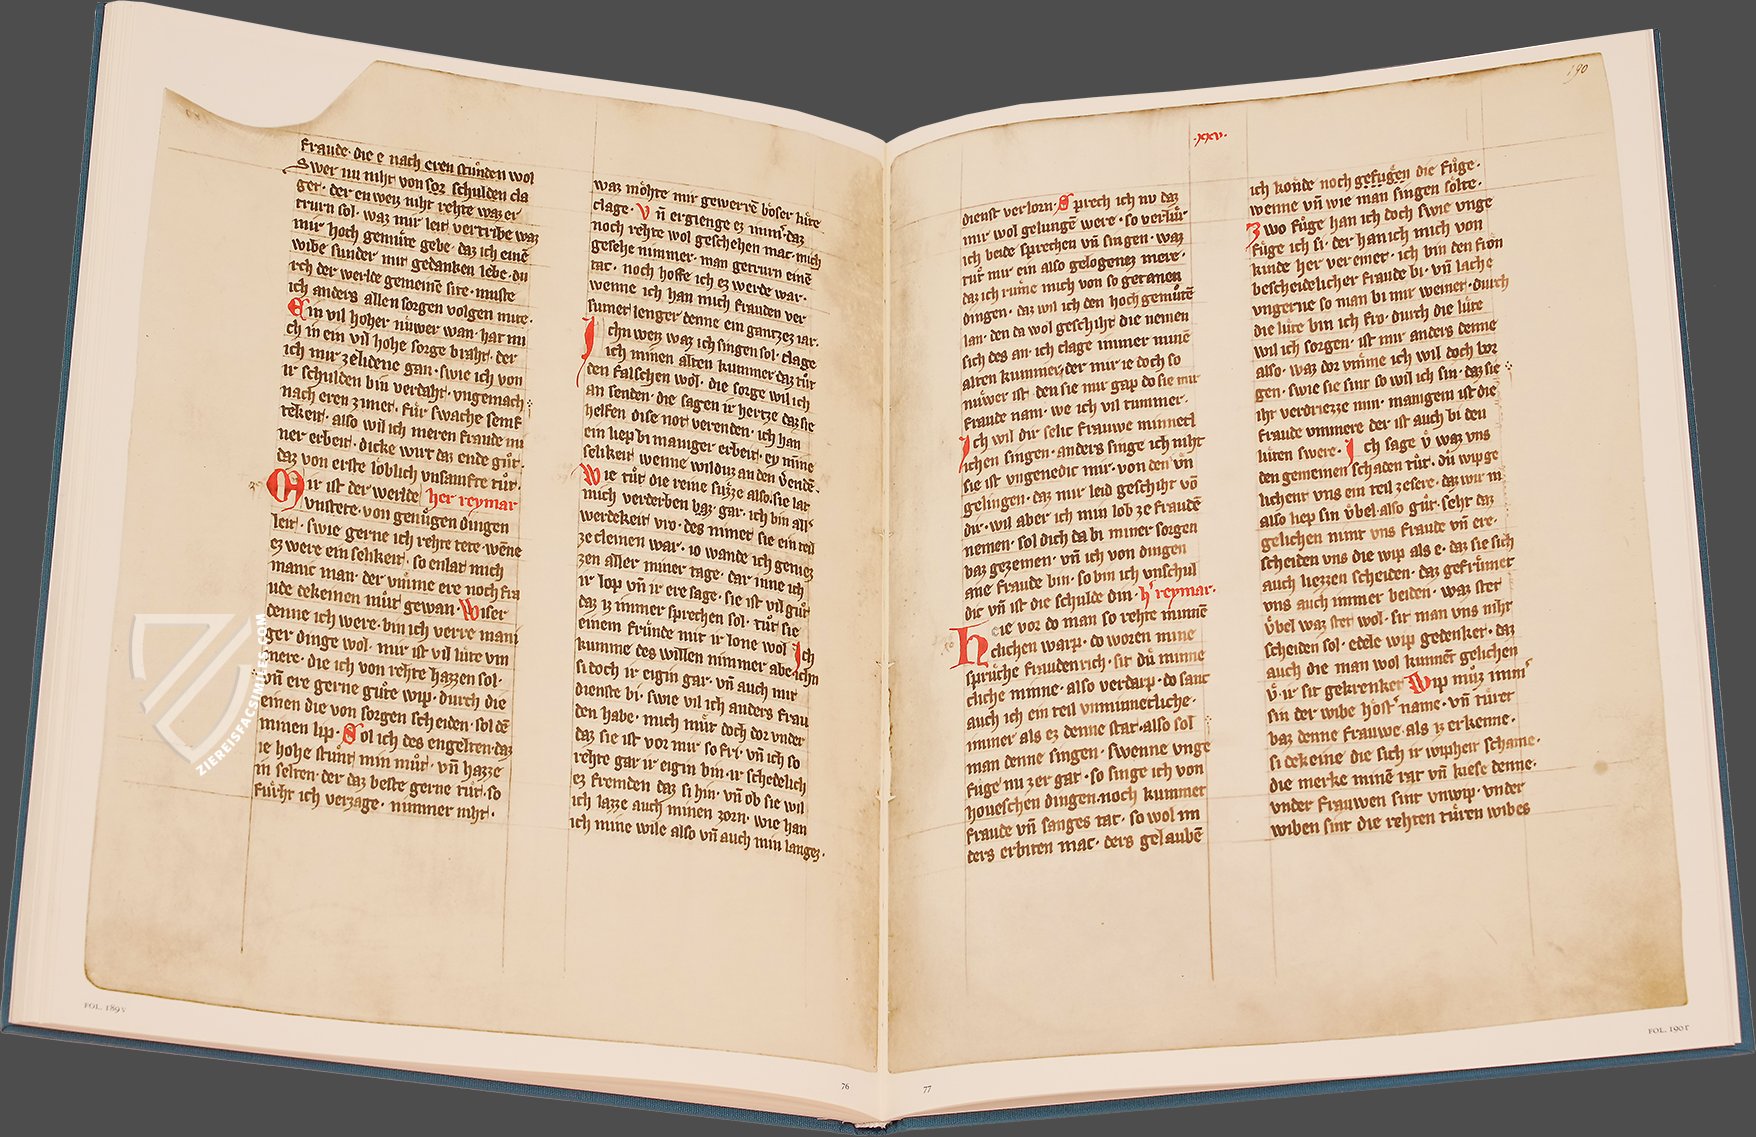 fraude· die e nach eren stunden wol
Swer nu niht von sor schulden cla
ger· der en weiz niht rehte waz er
trurn sol· waz mir leit vertribe waz
mir hoch gemuͤte gebe· daz ich eine
wibe sunder mit gedanken lebe· du
rch der werlde gemeinē site· muste
ich anders allen sorgen volgen mite·
Ein vil hoher nuwer wan· hat mi
ch in ein vil hohe sorge braht· der
ich mir ze lidene gan· swie ich von
ir schulden bin verdaht· vngemach
nach eren zimet· fur swache semf
tekeit· also wil ich meren fraude mi
ner erbeit· dicke wirt daz ende guͤt·
daz von erste loblich vnsamfte tuͦt·
Mir ist der werlde her reymar
vnstete· von genuͤgen dingen
leit· swie gerne ich rehte tete· wēne
ez were ein selikeit· so enlat mich
manic man· der vmme ere noch fra
ude dekeinen muͦt gewan· Wiser
denne ich were· bin ich verre mani
ger dinge wol· mir ist vil lute vm
mere· die ich von rehte hazzen sol·
vn̄ ere gerne guͤte wip· durch die
einen die von sorgen scheiden· sol dē
minen lip· Sol ich des engelten· daz
ie hohe stuͦnt min muͦt· vn̄ hazze
in selten· der daz beste gerne tuͦt· so
furht ich verzage· nimmer niht·
waz mohte mir gewerrē boser lute
clage· Vn̄ ergienge ez mir· daz
noch rehte wol geschehen mac· mich
gesehe nimmer· man getrurn einē
tac· noch hoffe ich ez werde war·
wenne ich han mich frauden ver
sumet lenger denne ein gantzez iar·
Ichn weiz waz ich singen sol· clage
ich minen alten kummer daz tuͦt
den falschen wol· die sorge wil ich
an senden· die sagen ir hertze daz sie
helfen dise not verenden· ich han
ein liep bi maniger erbeit· ey mīne
selikeit wenne wilduz an den v̾endē·
Wie tuͦt die reine suͤzze also· sie lat
mich verderben baz· gar· ich bin all
werdekeit vro· des nimet sie ein teil
ze cleinen war· io wande ich geniez
zen aller miner tage· dar inne ich
ir lop vn̄ ir ere sage· sie ist vil guͦt
daz iz immer sprechen sol· tuͦt sie
einem frunde mit ir lone wol Ich
kumme des willen nimmer abe· ichn
si doch ir eigin gar· vn̄ auch mit
dienste bi· swie vil ich anders frau
den habe· mich muͦt doch dor vnder
daz sie ist vor mir so fri· vn̄ ich so
rehte gar ir eigin bin· ir schedelich
ez fremden daz si hin· vn̄ ob sie wil
ich lazze auch minen zorn· wie han
ich mine wile also vn̄ auch min langez·
·xxv·
190
dienst verlorn· Sprech ich nv daz
mir wol gelungē were· so verluͦr
ich beide sprechen vn̄ singen· waz
tuͦt mir ein also gelogenez mere·
daz ich ruͤme mich von so getanen
dingen· daz wil ich den hoch gemuͤtē
lan· den da wol geschiht die nemen
sich des an· ich clage immer minē
alten kummer· der mir ie doch so
nuwer ist· den sie mir gap do sie mir
fraude nam· we ich vil tummer·
Ich wil dir selic frauwe minnecl
ichen singen· anders singe ich niht
sie ist vngenedic mir· von den vn̄
gelingen· daz mir leid geschiht vō
dir· wil aber ich min lob ze fraudē
nemen· sol dich da bi miner sorgen
baz gezemen· vn̄ ich von dingen
ane fraude bin· so bin ich vnschul
dic vn̄ ist die schulde din· h' reymar·
Hie vor do man so rehte minnē
clichen warp· do woren mine
spruͤche fraudenrich· sit du minne
cliche minne· also verdarp· do sanc
auch ich ein teil vnminnecliche·
immer als ez denne stat· also sol
man denne singen· swenne vnge
fuͤge nu zer gat· so singe ich von
houeschen dingen· noch kummet
fraude vn̄ sanges tac· so wol im
ders erbiten mac· ders gelaubē
ich konde noch gefugen die fuͤge·
wenne vn̄ wie man singen solte·
Zwo fuͤge han ich doch swie vnge
fuͤge ich si· der han ich mich von
kinde her vereinet· ich bin den fron
bescheidelicher fraude bi· vn̄ lache
vngerne so man bi mir weinet· durch
die lute bin ich fro· durch die lute
wil ich sorgen· ist mir anders denne
also· waz dor vmme ich wil doch bor
gen· swie sie sint so wil ich sin· daz sie
iht verdriezze min· manigem ist die
fraude vnmere der ist auch bi den
luten swere· Ich sage v̓ waz vns
den gemeinen schaden tuͦt· du wipge
lichent vns ein teil ze sere· daz wir in
also liep sin v̓bel also guͦt· seht daz
gelichen nimt vns fraude vn̄ ere·
scheiden vns die wip als e· daz sie sich
auch liezzen scheiden· daz gefrumet
vns auch immer beiden· waz stet
v̓bel waz stet wol· sit man vns niht
scheiden sol· edele wip gedenket· daz
auch die man wol kunnēt gelichen
v̓· ir sit gekrenket Wip muͦz imm'
sin der wibe hoste name· vn̄ tuͤret
baz denne frauwe· als iz erkenne·
si dekeine die sich ir wipheit schame·
die merke minē rat vn̄ kiese denne·
vnder frauwen sint vnwip· vnder
wiben sint die rehten tuͤren wibes
ZIEREISFACSIMILES.COM
FOL. 189v
76
77
FOL. 190r